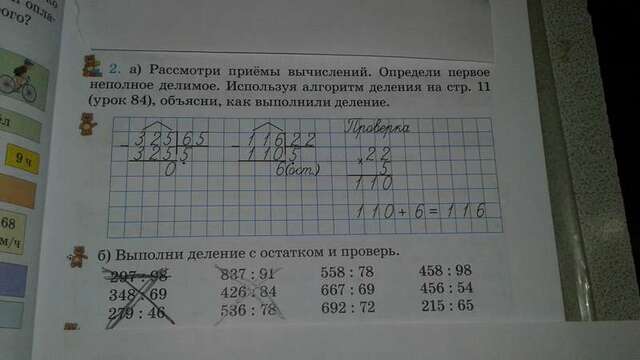 ко
опла-
рого?
2. а) Рассмотри приёмы вычислений. Определи первое
неполное делимое. Используя алгоритм деления на стр. 11
(урок 84), объясни, как выполнили деление.
л
9 ч
68
м/ч
325 65
325 5
0
116 22
110 5
6(ост.)
Проверка
×22
5
110
110+6=116
б) Выполни деление с остатком и проверь.
297 : 98 837 : 91 558 : 78 458 : 98
348 : 69 426 : 84 667 : 69 456 : 54
279 : 46 536 : 78 692 : 72 215 : 65